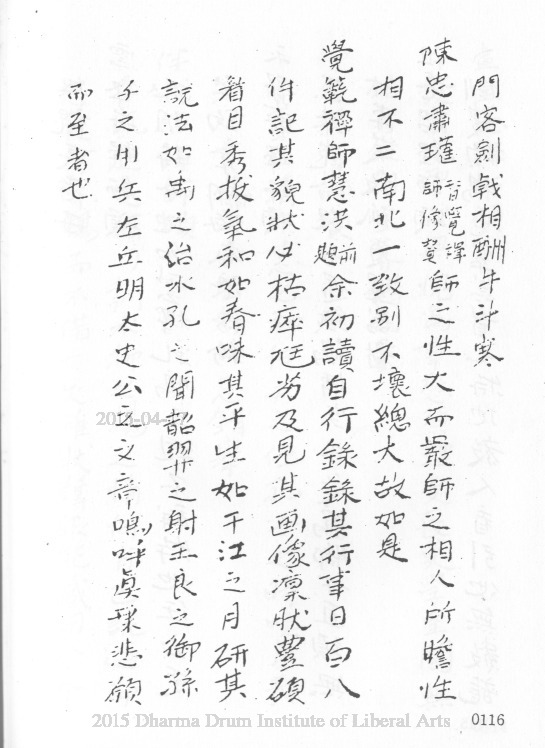 門客劍戟相酬牛斗寒
陳忠肅瓘智覺禪師像贊師之性大而嚴師之相人所瞻性
相不二南北一致別不壞總大故如是
覺範禪師慧洪題前余初讀自行錄錄其行事日百八
件記其貌狀必枯瘁尪劣及見其画像凜狀豐碩
眉目秀拔氣和如春味其平生如千江之月研其
說法如禹之治水孔之聞韶羿之射王良之御孫
子之用兵左丘明太史公之文章嗚呼真乘悲願
而至者也
2015-04-
2015 Dharma Drum Institute of Liberal Arts
0116